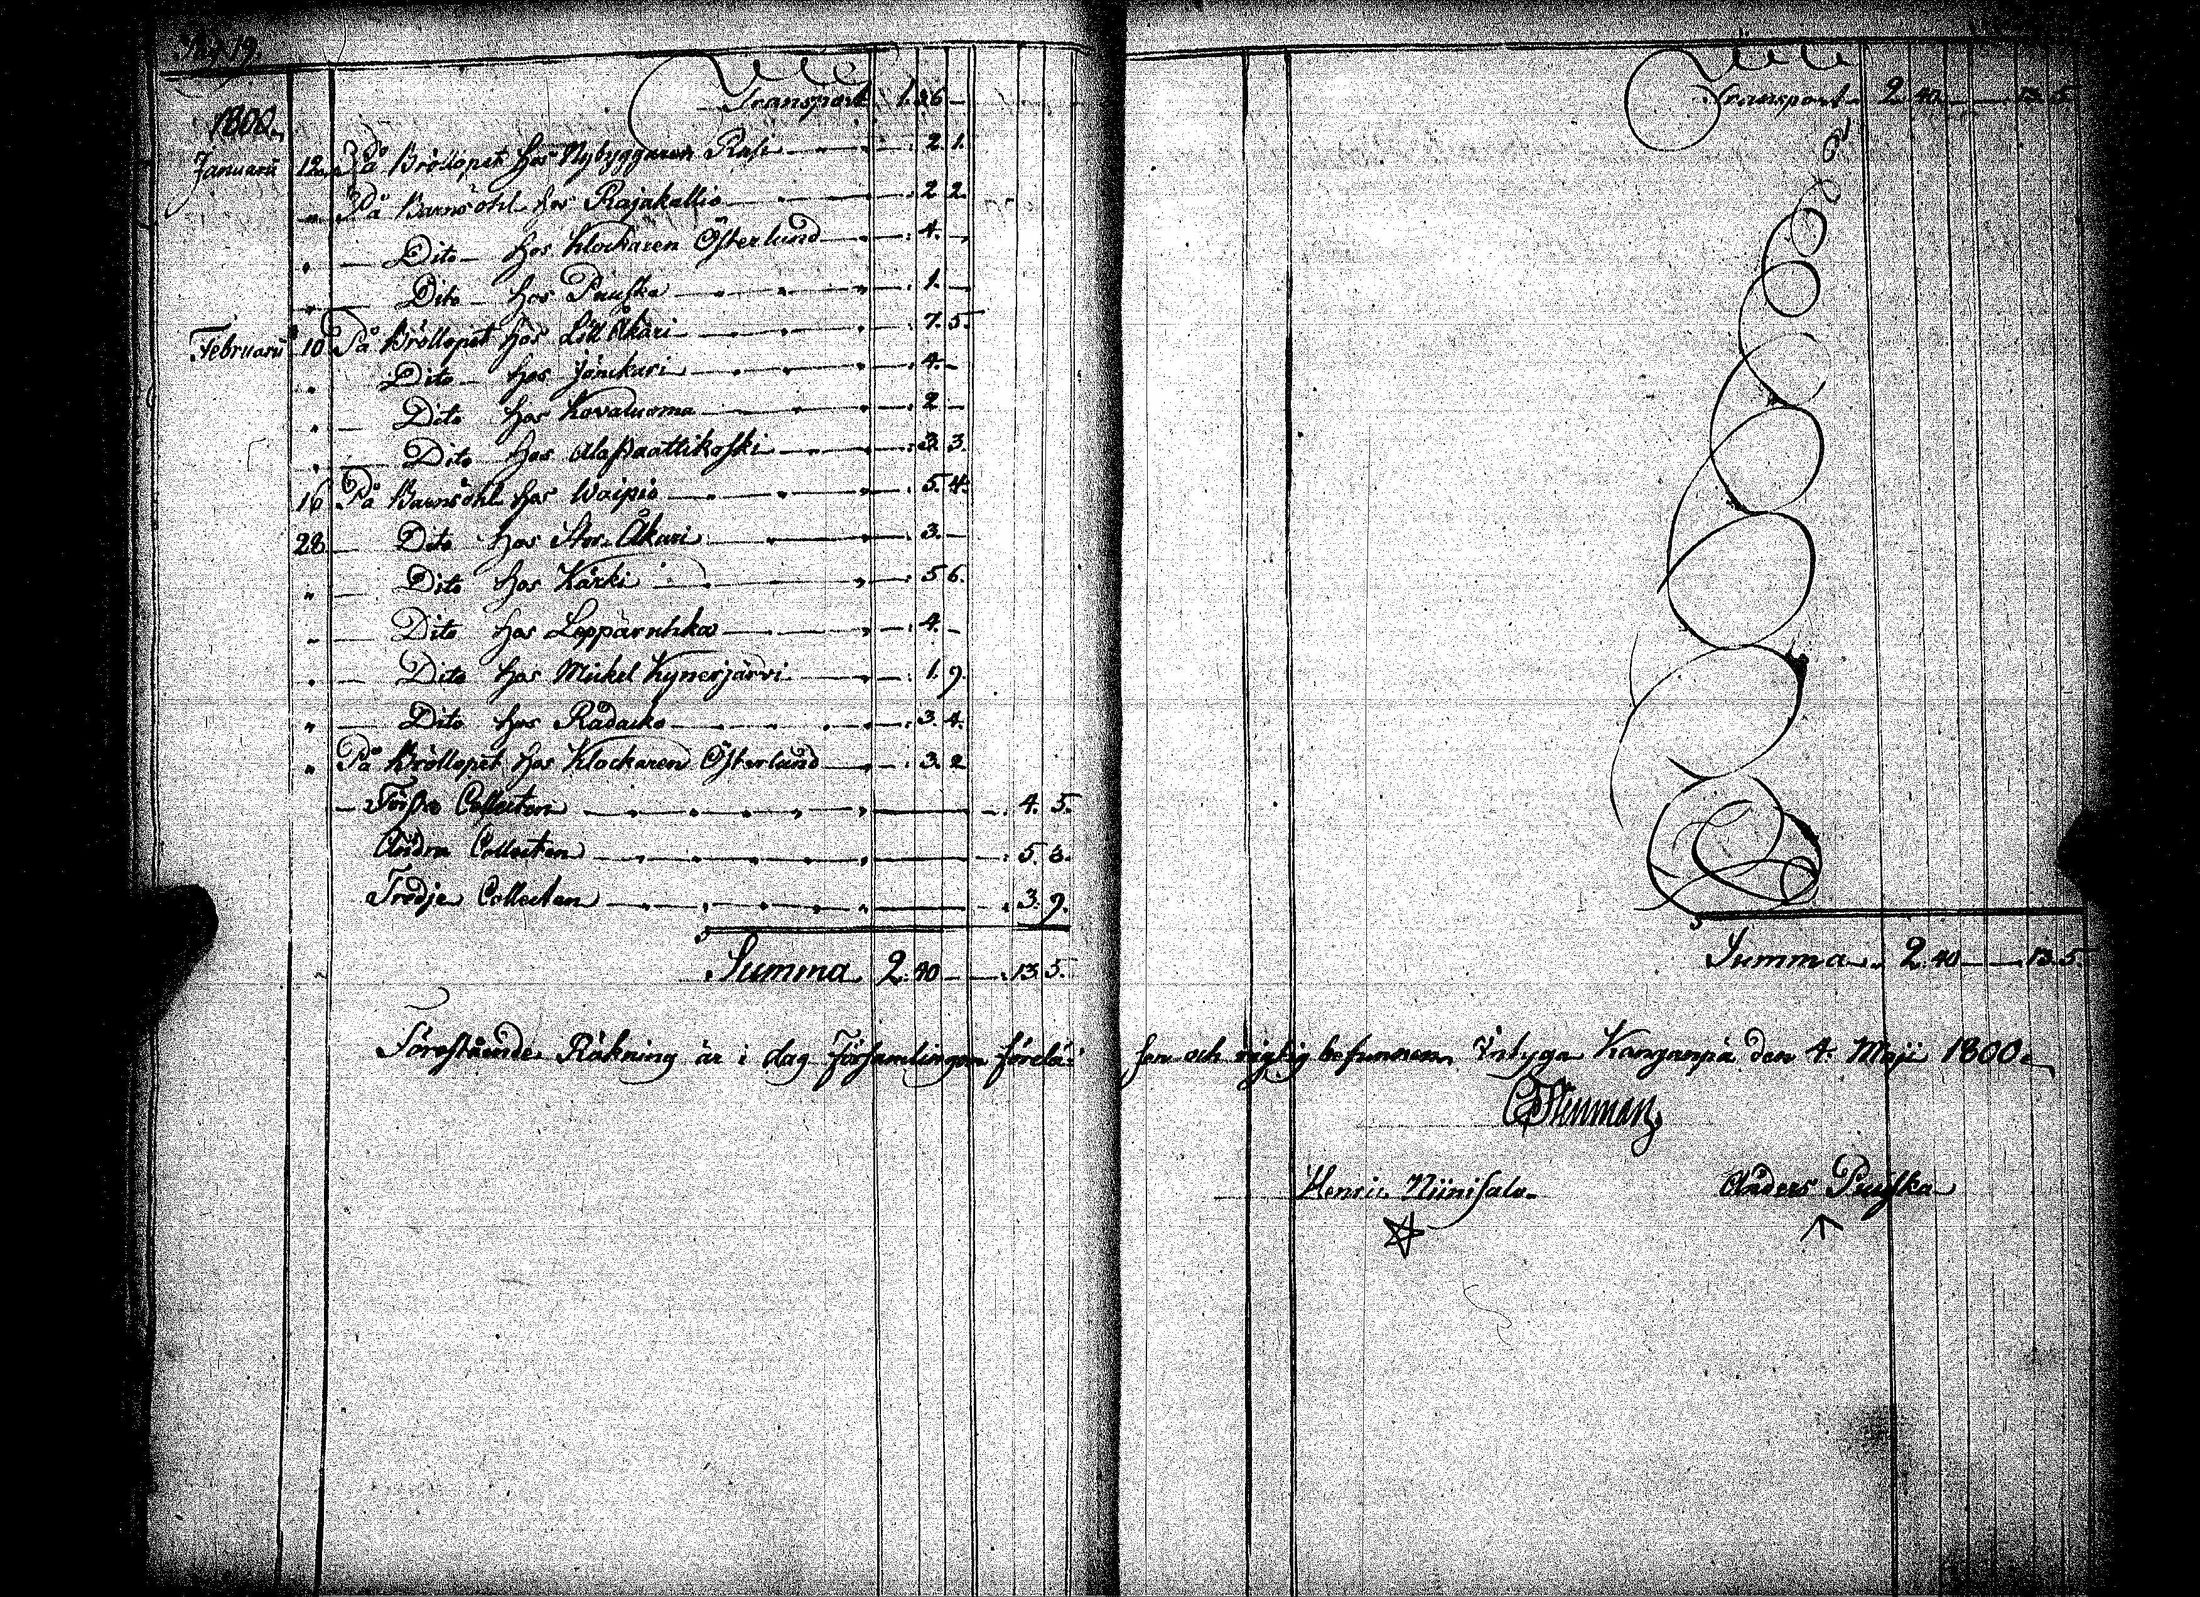 Transport 1. 36 —
1800.
Januarii 12. På Bröllopet hos Nybyggaren Rasi — 2. 1.
" På Barnsöhl hos Rajakallio — 2. 2.
" Dito hos Klockaren Österlund — 4. —
" Dito hos Puuska — 1. —
Februarii 10 På Bröllopet hos Lill Åkari — 7. 5.
" Dito hos Jämikari — 4. —
" Dito hos Kovaluoma — 2 —
" Dito hos Alapaattikoski — 3. 3.
16 På Barnsöhl hos Waipio — 5. 4.
28 Dito hos Stor Åkari — 3. —
" Dito hos Kärki — 5 6.
" Dito hos — 4. —
" Dito hos Mickel Kynerjärvi — 1. 9.
" Dito hos — 3. 4.
" På Bröllopet hos Klockaren Österlund — 3. 2
Första Collecten — 4. 5.
Andra Collecten — 5. 3.
Tredje Collecten — 3. 9.
Summa 2. 40 — 13. 5.
Transport 2. 40 — 13. 5.
Summa 2. 40 — 13. 5.
Förestående Räkning är i dag Församlingen förelä- sen och rigtig befunnen, intygar Kanganpä den 4. Maji 1800.
Henric Niinisalo Anders Puuska